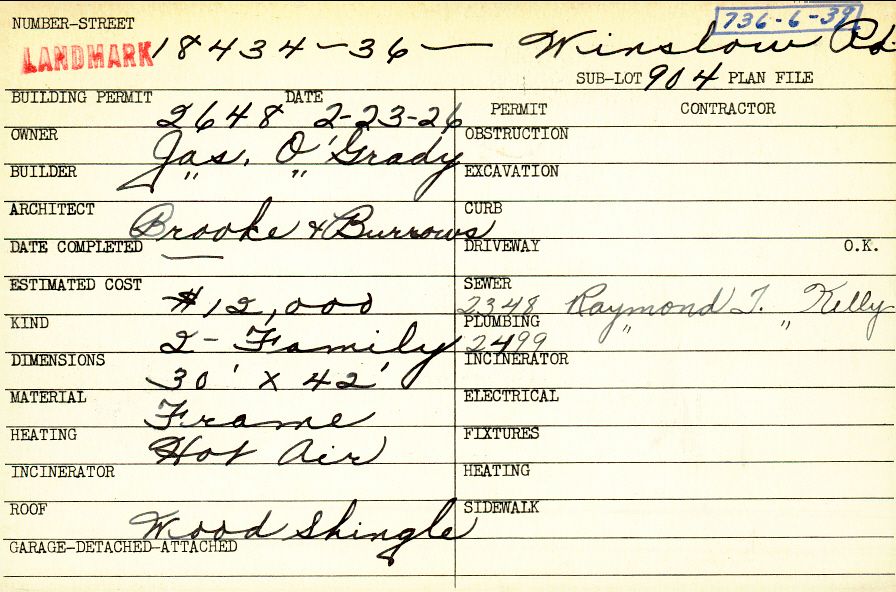 736-6-39
NUMBER-STREET
LANDMARK 18434-36 — Winslow Rd
SUB-LOT 904 PLAN FILE
BUILDING PERMIT DATE
2648 2-23-26
PERMIT CONTRACTOR
OWNER Jas. O'Grady
OBSTRUCTION
BUILDER " "
EXCAVATION
ARCHITECT Brooke & Burrows
CURB
DATE COMPLETED —
DRIVEWAY O.K.
ESTIMATED COST $12,000
SEWER
2348 Raymond T. Kelly
KIND 2-Family
PLUMBING " "
2499
DIMENSIONS 30' x 42'
INCINERATOR
MATERIAL Frame
ELECTRICAL
HEATING Hot Air
FIXTURES
INCINERATOR
HEATING
ROOF Wood Shingle
SIDEWALK
GARAGE-DETACHED-ATTACHED